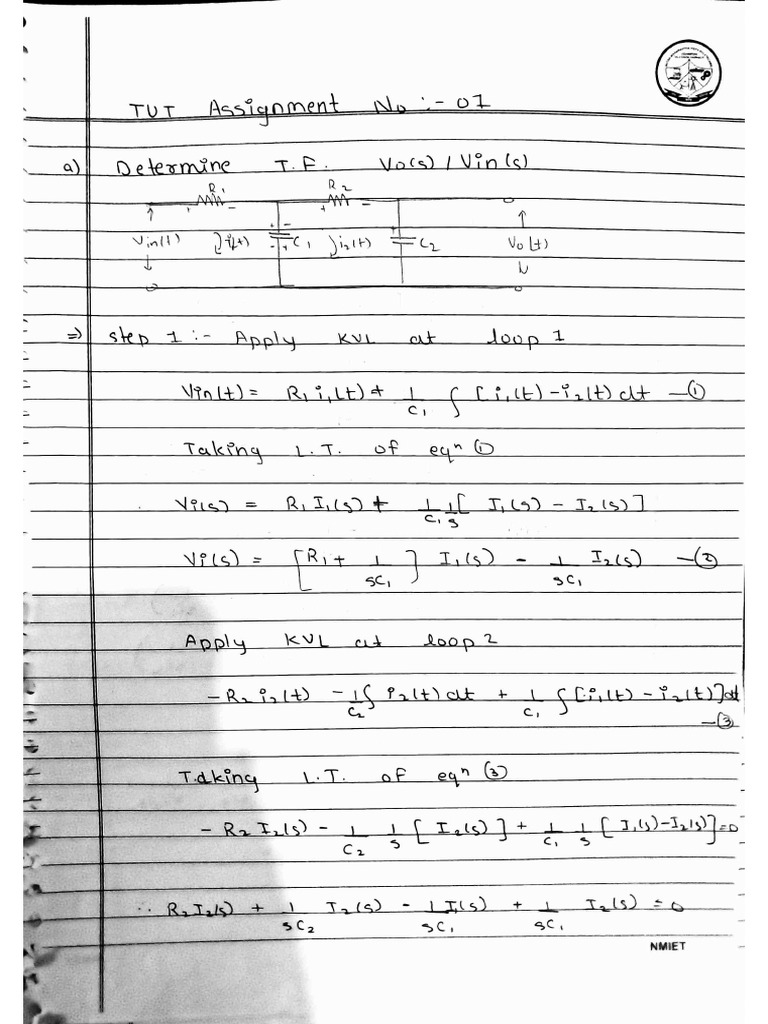 TUT Assignment No :- 01
a) Determine T.F. Vo(s) / Vin(s)
R1 R2
Vin(t) i1(t) C1 i2(t) C2 Vo(t)
⇒ step 1 :- Apply KVL at loop 1
Vin(t) = R1 i1(t) + 1/C1 ∫ [i1(t) - i2(t) dt —①
Taking L.T. of eqn ①
Vi(s) = R1 I1(s) + 1/C1 1/s [ I1(s) - I2(s)]
Vi(s) = [R1 + 1/sC1] I1(s) - 1/sC1 I2(s) —②
Apply KVL at loop 2
- R2 i2(t) - 1/C2 ∫ i2(t) dt + 1/C1 ∫ [i1(t) - i2(t)] dt
—③
Taking L.T. of eqn ③
- R2 I2(s) - 1/C2 1/s [ I2(s)] + 1/C1 1/s [ I1(s) - I2(s)] = 0
∴ R2 I2(s) + 1/sC2 I2(s) - 1/sC1 I(s) + 1/sC1 I2(s) = 0
NMIET